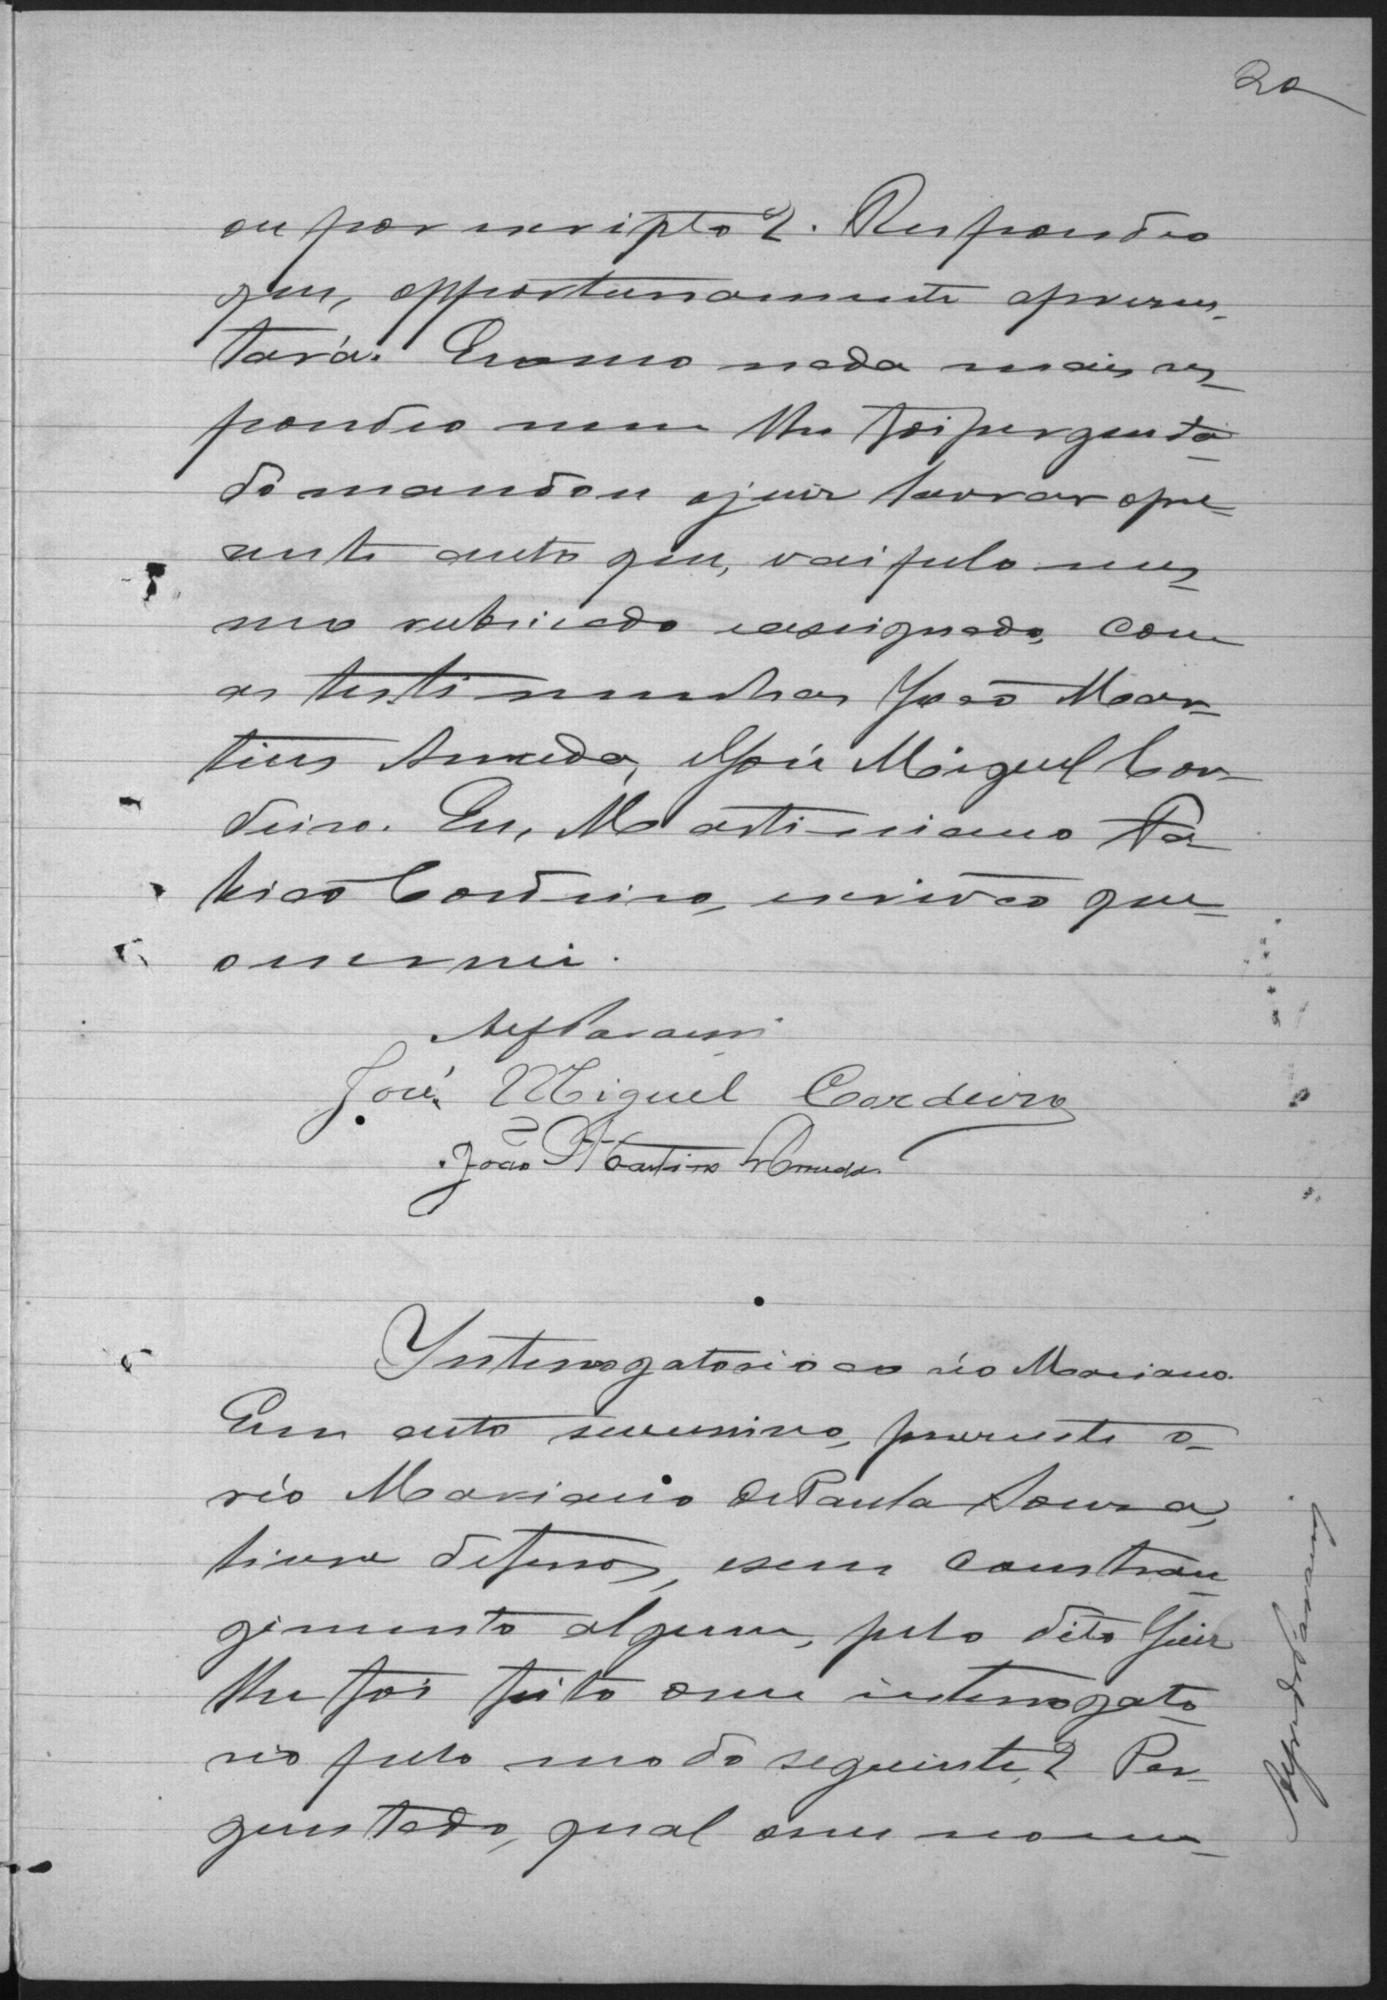 20
ou por escripto?. Respondeo
que, opportunamente apresen-
tará. E como nada mais res-
pondeo nem lhe foi pergunta-
do mandou o juiz lavrar o pre-
sente auto que, vai pelo mes-
mo rubricado e assignado, com
as testimunhas João Mar-
tins Arruda, e José Miguel Cor-
deiro. Eu, Martiniano
Cordeiro, escrivão que
o escrevi.
José Miguel Cordeiro
João Martins Arruda
Interrogatorio ao réo Mariano.
Em acto successivo, presente o
réo Mariano de Paula Souza,
livre de ferros, e sem constran-
gimento algum, pelo dito Juiz
lhe foi feito o seu interrogato-
rio pelo modo seguinte,? Per-
guntado, qual o seu nome